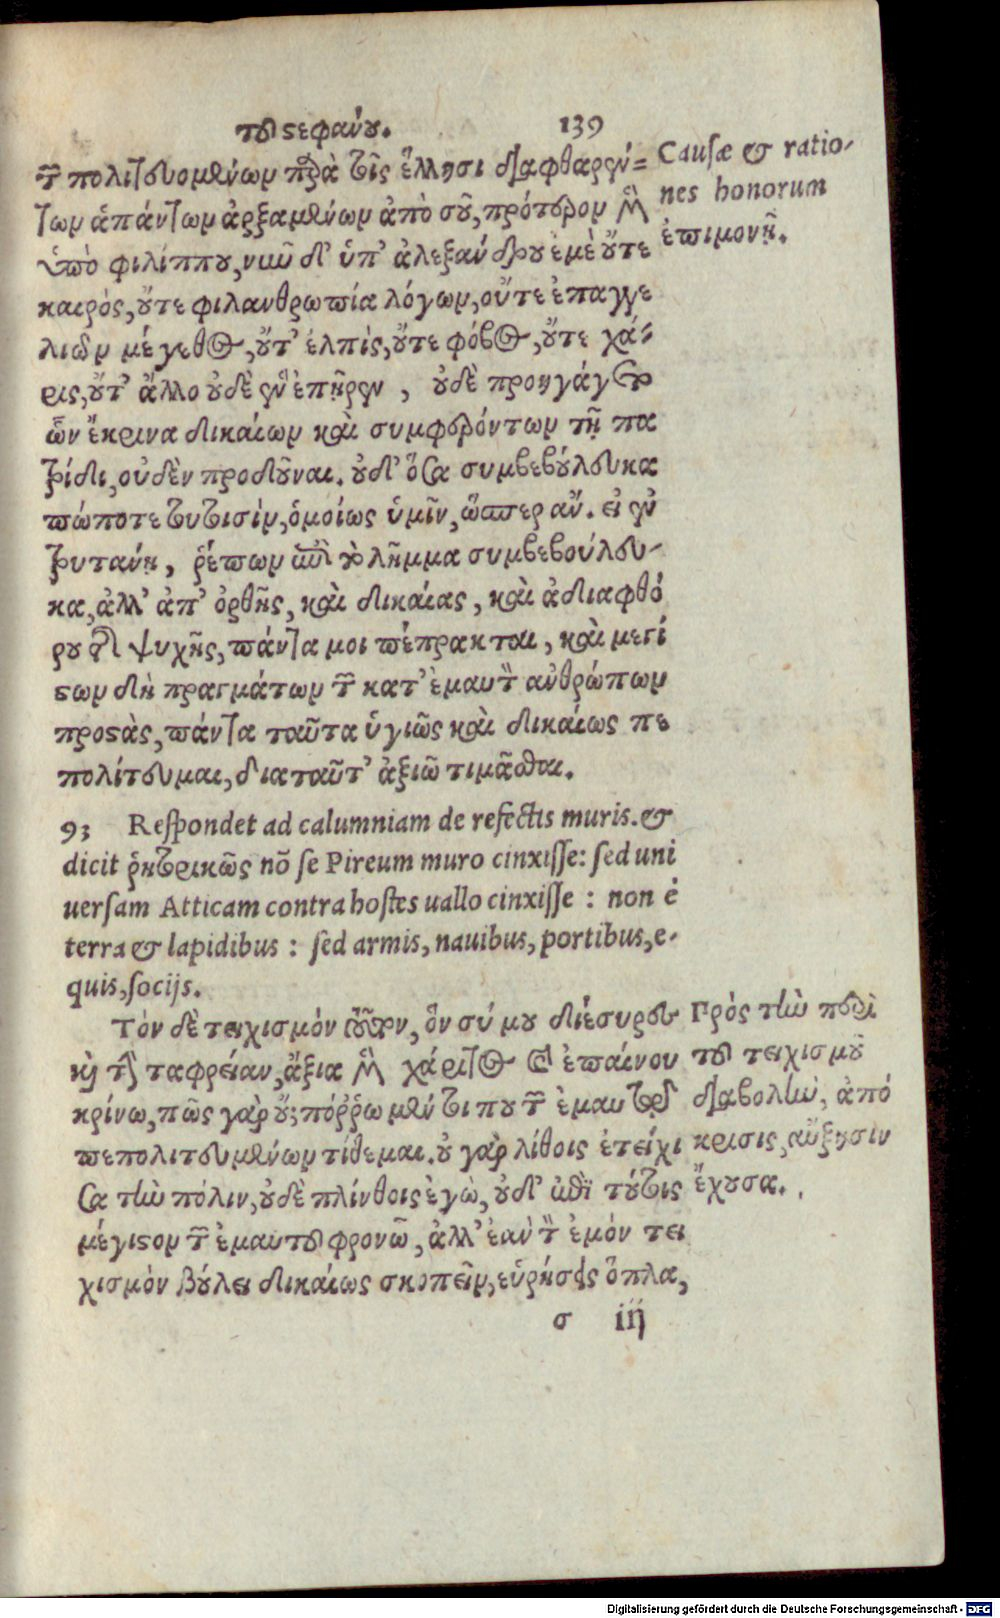 τοῦ στεφάνου. 139
τῶν πολιτευομένων παρὰ τοῖς ἕλλησι διαφθαρέν=
των ἁπάντων ἀρξαμένων ἀπὸ σοῦ, πρότερον μὲν
ὑπὸ φιλίππου, νυνὶ δ' ὑπ' ἀλεξάνδρου ἐμὲ οὔτε
καιρὸς, οὔτε φιλανθρωπία λόγων, οὔτε ἐπαγγε
λιῶν μέγεθος, οὔτ' ἐλπὶς, οὔτε φόβος, οὔτε χά-
ρις, οὔτ' ἄλλο οὐδὲν ἐπῆρεν, οὐδὲ προηγάγετο
ὧν ἔκρινα δικαίων καὶ συμφερόντων τῇ πα
τρίδι, οὐδὲν προδοῦναι. οὐδ' ὅσα συμβεβούλευκα
πώποτε τουτοισὶν, ὁμοίως ὑμῖν, ὥσπερ ἂν. εἰ ἐν
τρυτάνῃ, ῥέπων ἐπὶ τὸ λῆμμα συμβεβούλευ-
κα, ἀλλ' ἀπ' ὀρθῆς, καὶ δικαίας, καὶ ἀδιαφθό
ρου τῆς ψυχῆς, πάντα μοι πέπρακται, καὶ μεγί
στων δὴ πραγμάτων τῶν κατ' ἐμαυτὸν ἀνθρώπων
προστὰς, πάντα ταῦτα ὑγιῶς καὶ δικαίως πε
πολίτευμαι, διαταῦτ' ἀξιῶ τιμᾶσθαι.
93 Respondet ad calumniam de refectis muris. &
dicit ῥητορικῶς nõ se Pireum muro cinxisse: sed uni
uersam Atticam contra hostes uallo cinxisse : non è
terra & lapidibus : sed armis, nauibus, portibus, e-
quis, socijs.
Τὸν δὲ τειχισμὸν τοῦτον, ὃν σύ μου διέσυρες
καὶ τὴν ταφρείαν, ἄξια μὲν χάριτος καὶ ἐπαίνου
κρίνω, πῶς γὰρ οὔ; πόῤῥω μέν τοι που τῶν ἐμαυτῷ
πεπολιτευμένων τίθεμαι. οὐ γὰρ λίθοις ἐτείχι
σα τὴν πόλιν, οὐδὲ πλίνθοις ἐγὼ, οὐδ' ἐπὶ τούτοις
μέγιστον τῶν ἐμαυτοῦ φρονῶ, ἀλλ' ἐὰν τὸν ἐμόν τει
χισμὸν βούλει δικαίως σκοπεῖν, εὑρήσεις ὅπλα,
σ iij
Causæ & ratio-
nes honorum
ἐπιμονῇ.
Πρὸς τὴν περὶ
τοῦ τειχισμοῦ
διαβολὴν, ἀπό
κρισις, αὔξησιν
ἔχουσα.
Digitalisierung gefördert durch die Deutsche Forschungsgemeinschaft - DFG